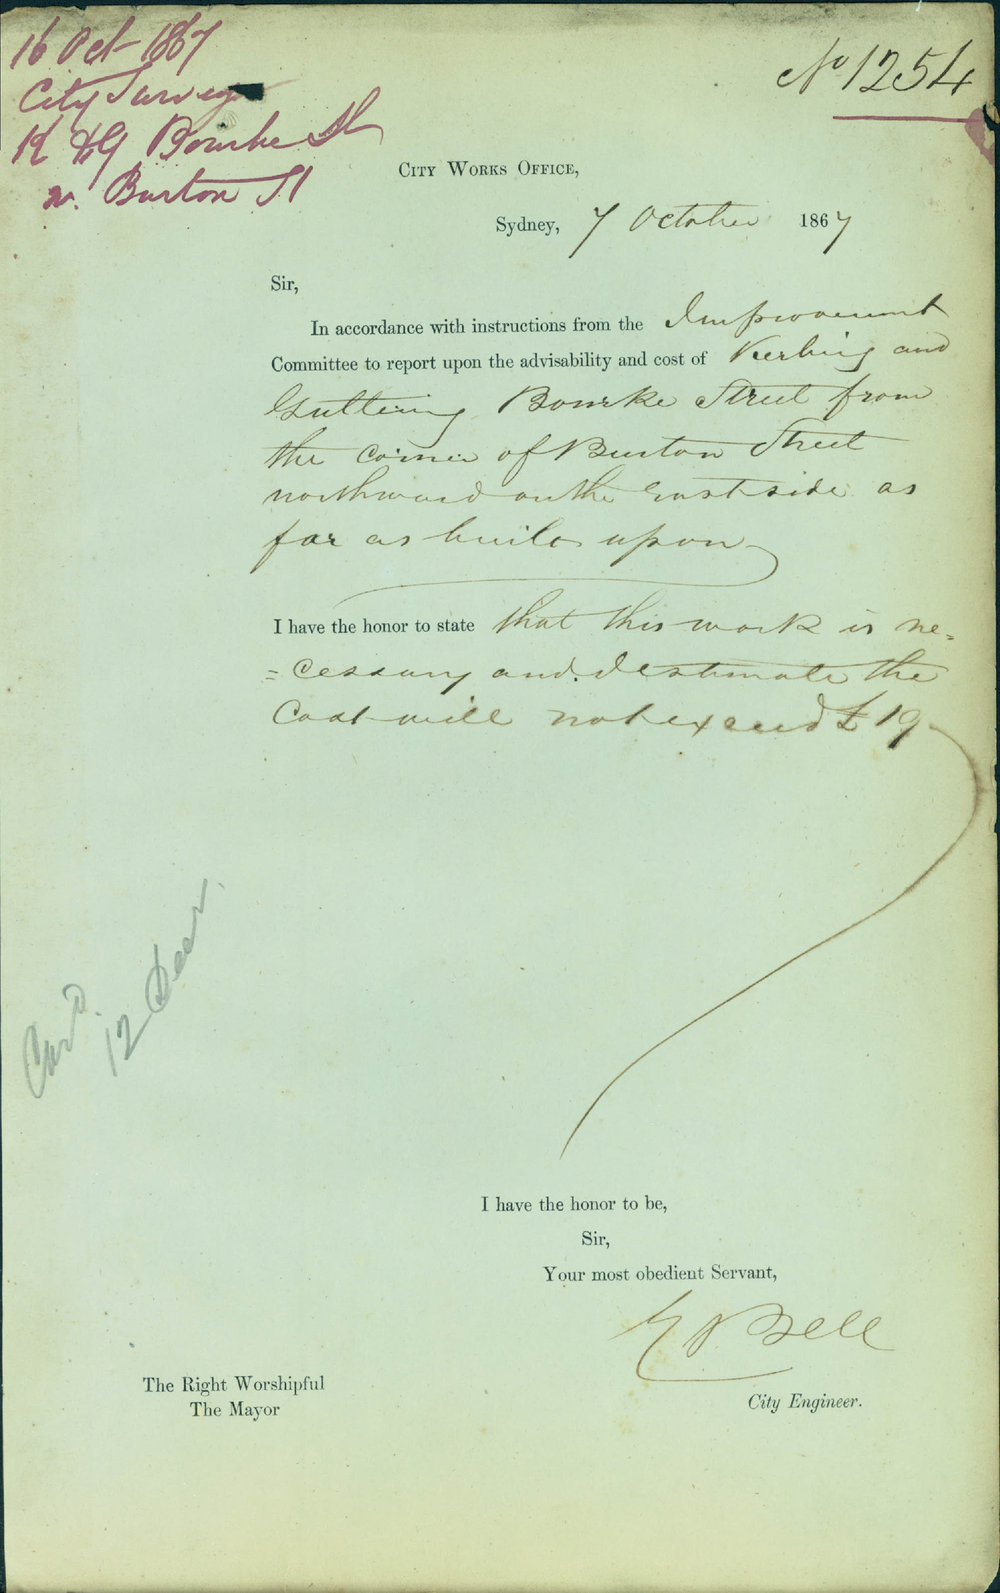 16 Oct 1867
City Survey
K & G Bourke St
n. Burton St
No 1254
City Works Office,
Sydney, 7 October 1867
Sir,
In accordance with instructions from the Improvement
Committee to report upon the advisability and cost of Kerbing and
Guttering Bourke Street from
the corner of Burton Street
northward on the East side as
far as built upon
I have the honor to state that this work is ne=
=cessary and I estimate the
Cost will not exceed £19
12 Decr
I have the honor to be,
Sir,
Your most obedient Servant,
E Bell
City Engineer.
The Right Worshipful
The Mayor